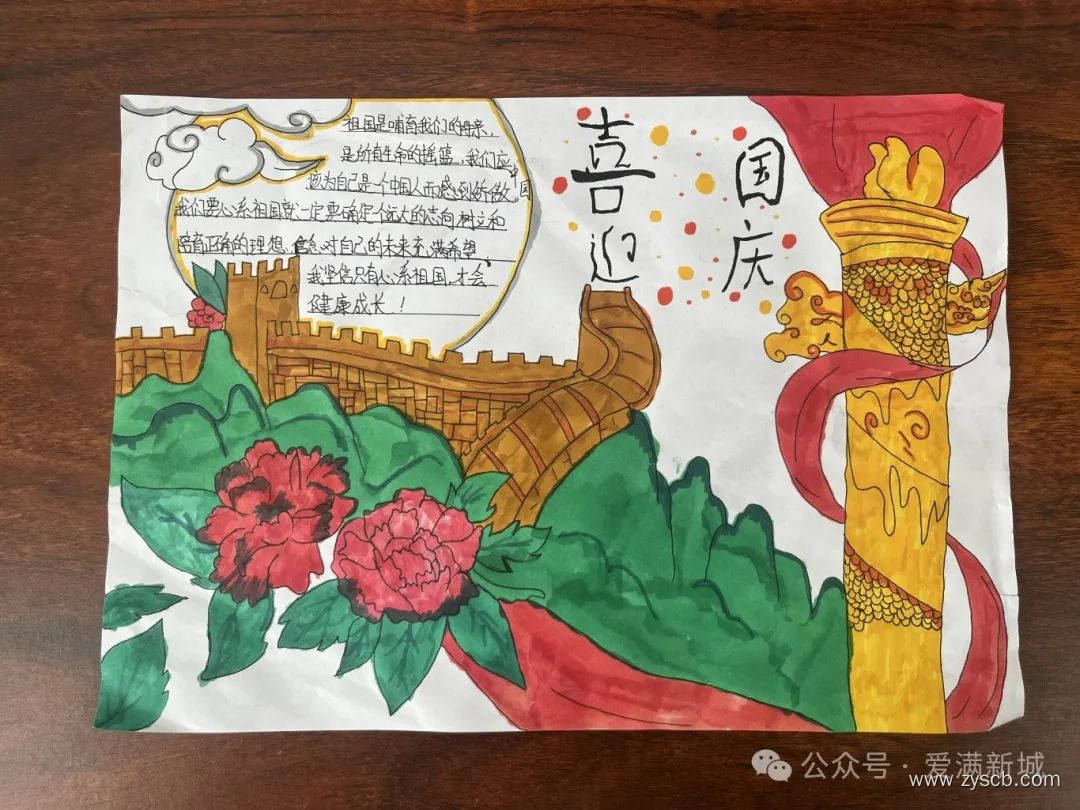 祖国是哺育我们的母亲,
是所有生命的摇篮,我们应
该为自己是一个中国人而感到骄傲。因
我们要心系祖国就一定要确定个远大的志向树立和
培育正确的理想、信念,对自己的未来充满希望
我坚信只有心系祖国,才会
健康成长!
喜迎
国庆
公众号·爱满新城
www.zyscb.com